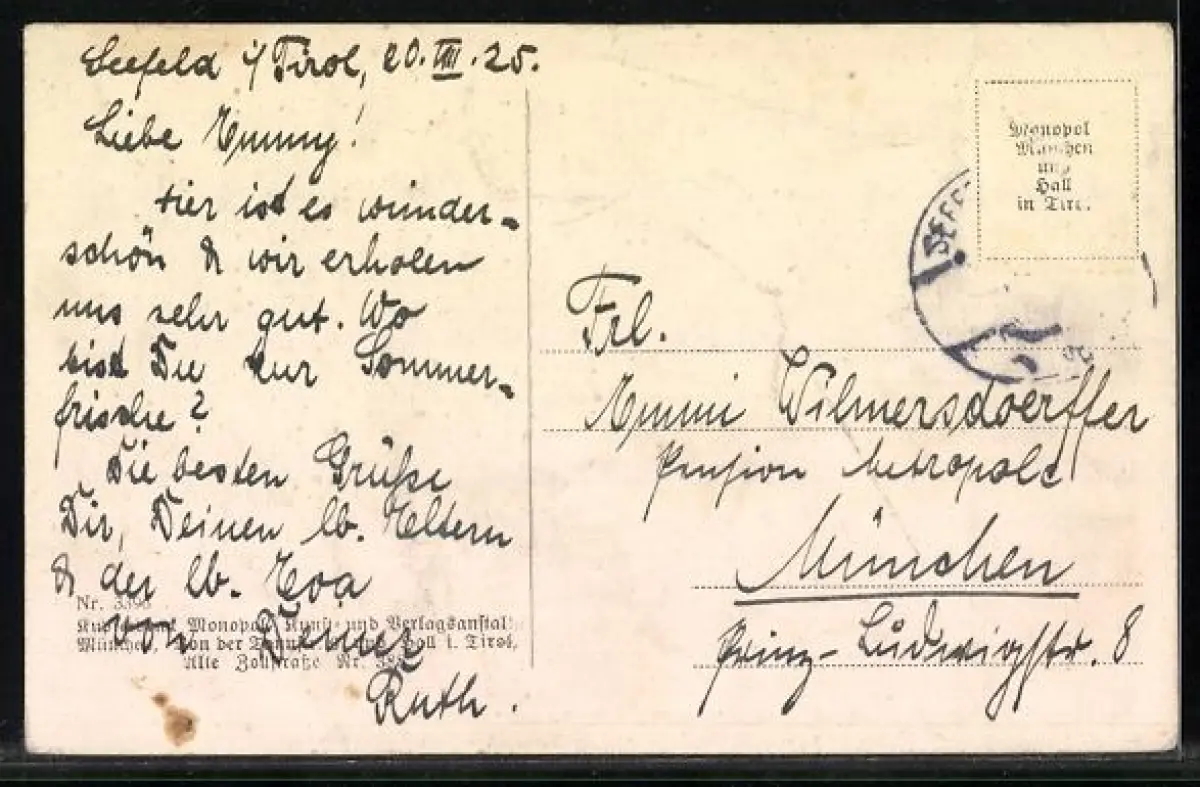 Seefeld i/Tirol, 20. VIII. 25.
Liebe Emmy!
Hier ist es wunder-
schön & wir erholen
uns sehr gut. Wo
bist Du zur Sommer-
frische?
Die besten Grüße
Dir, Deinen lb. Eltern
& der lb. Eva
von Deiner
Ruth.
Nr. 3396
Monopol Kunst- und Verlagsanstalt
München, Von der Hall i. Tirol,
Alte Zollstraße Nr.
Monopol
München
und
Hall
in Tirol.
SEEF
Frl.
Emmi Wilmersdoerffer
Pension Metropole
München
Prinz-Ludwigstr. 8